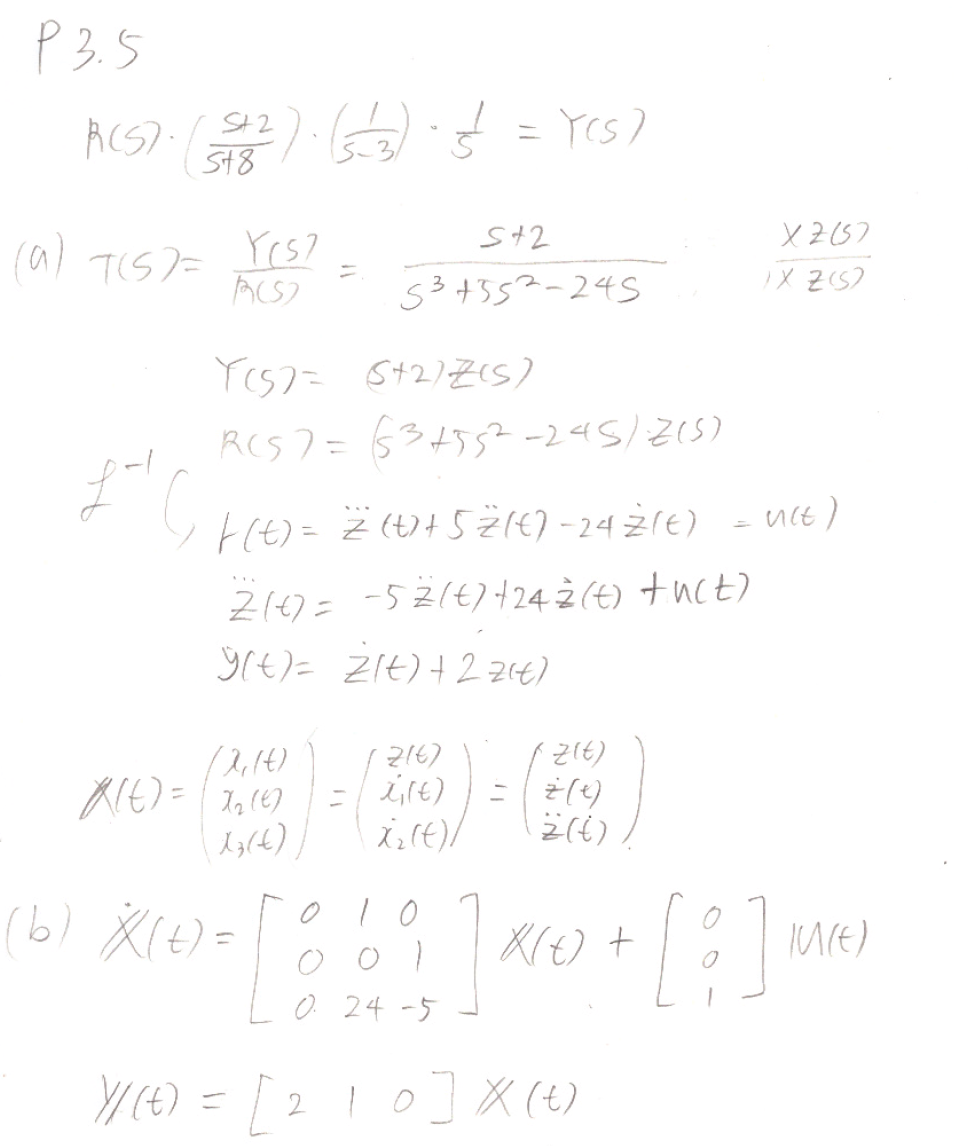 P 3.5
R(s)·(s+2/s+8)·(1/s-3)·1/s = Y(s)
(a) T(s)= Y(s)/R(s) = s+2/s³+5s²-24s XZ(s)/XZ(s)
Y(s)= (s+2)Z(s)
R(s)= (s³+5s²-24s)·Z(s)
ℒ⁻¹
r(t)= z⃛(t)+5z̈(t)-24ż(t) =u(t)
z⃛(t)= -5z̈(t)+24ż(t)+u(t)
y(t)= ż(t)+2z(t)
X(t)= (x₁(t) x₂(t) x₃(t)) = (z(t) ẋ₁(t) ẋ₂(t)) = (z(t) ż(t) z̈(t))
(b) Ẋ(t)= [0 1 0 0 0 1 0 24 -5] X(t) + [0 0 1] U(t)
Y(t) = [2 1 0] X(t)